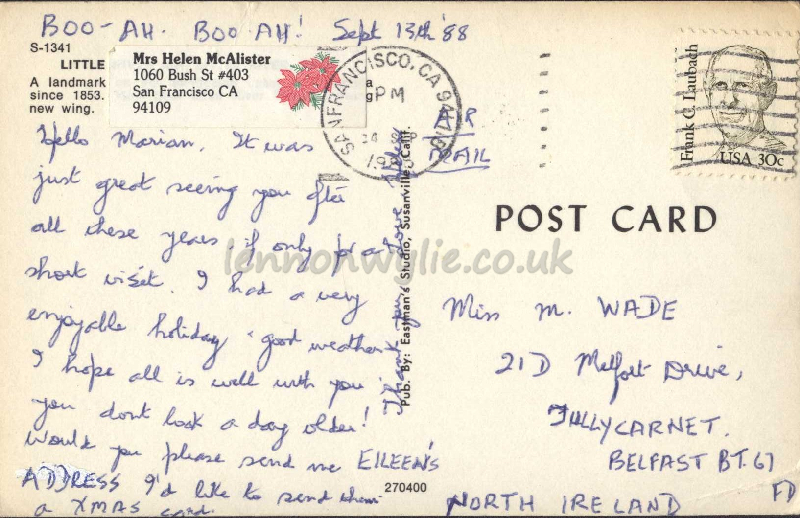 BOO-AH. BOO AH! Sept 13th '88
S-1341
LITTLE
A landmark
since 1853.
new wing.
a
g
Mrs Helen McAlister
1060 Bush St #403
San Francisco CA
94109
SAN FRANCISCO, CA 941
PM
AIR
MAIL
Frank C. Laubach
USA 30c
Hello Marian. It was
just great seeing you after
all these years if only for a
short visit. I had a very
enjoyable holiday & good weather.
I hope all is well with you
you dont look a day older!
Would you please send me EILEEN'S
ADDRESS I'd like to send them
a XMAS card.
Thank you Love
Pub. By: Eastman's Studio, Susanville, Calif.
270400
POST CARD
Miss M. WADE
21D Melfort Drive,
TULLYCARNET.
BELFAST BT.67
NORTH IRELAND
FD
lennonwylie.co.uk